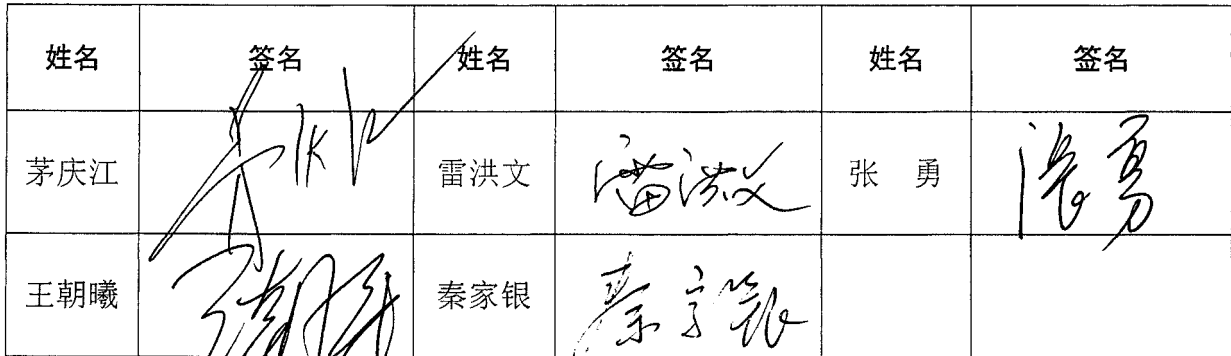 姓名 签名 姓名 签名 姓名 签名
茅庆江 雷洪文 雷洪文 张 勇 张勇
王朝曦 秦家银 秦家银